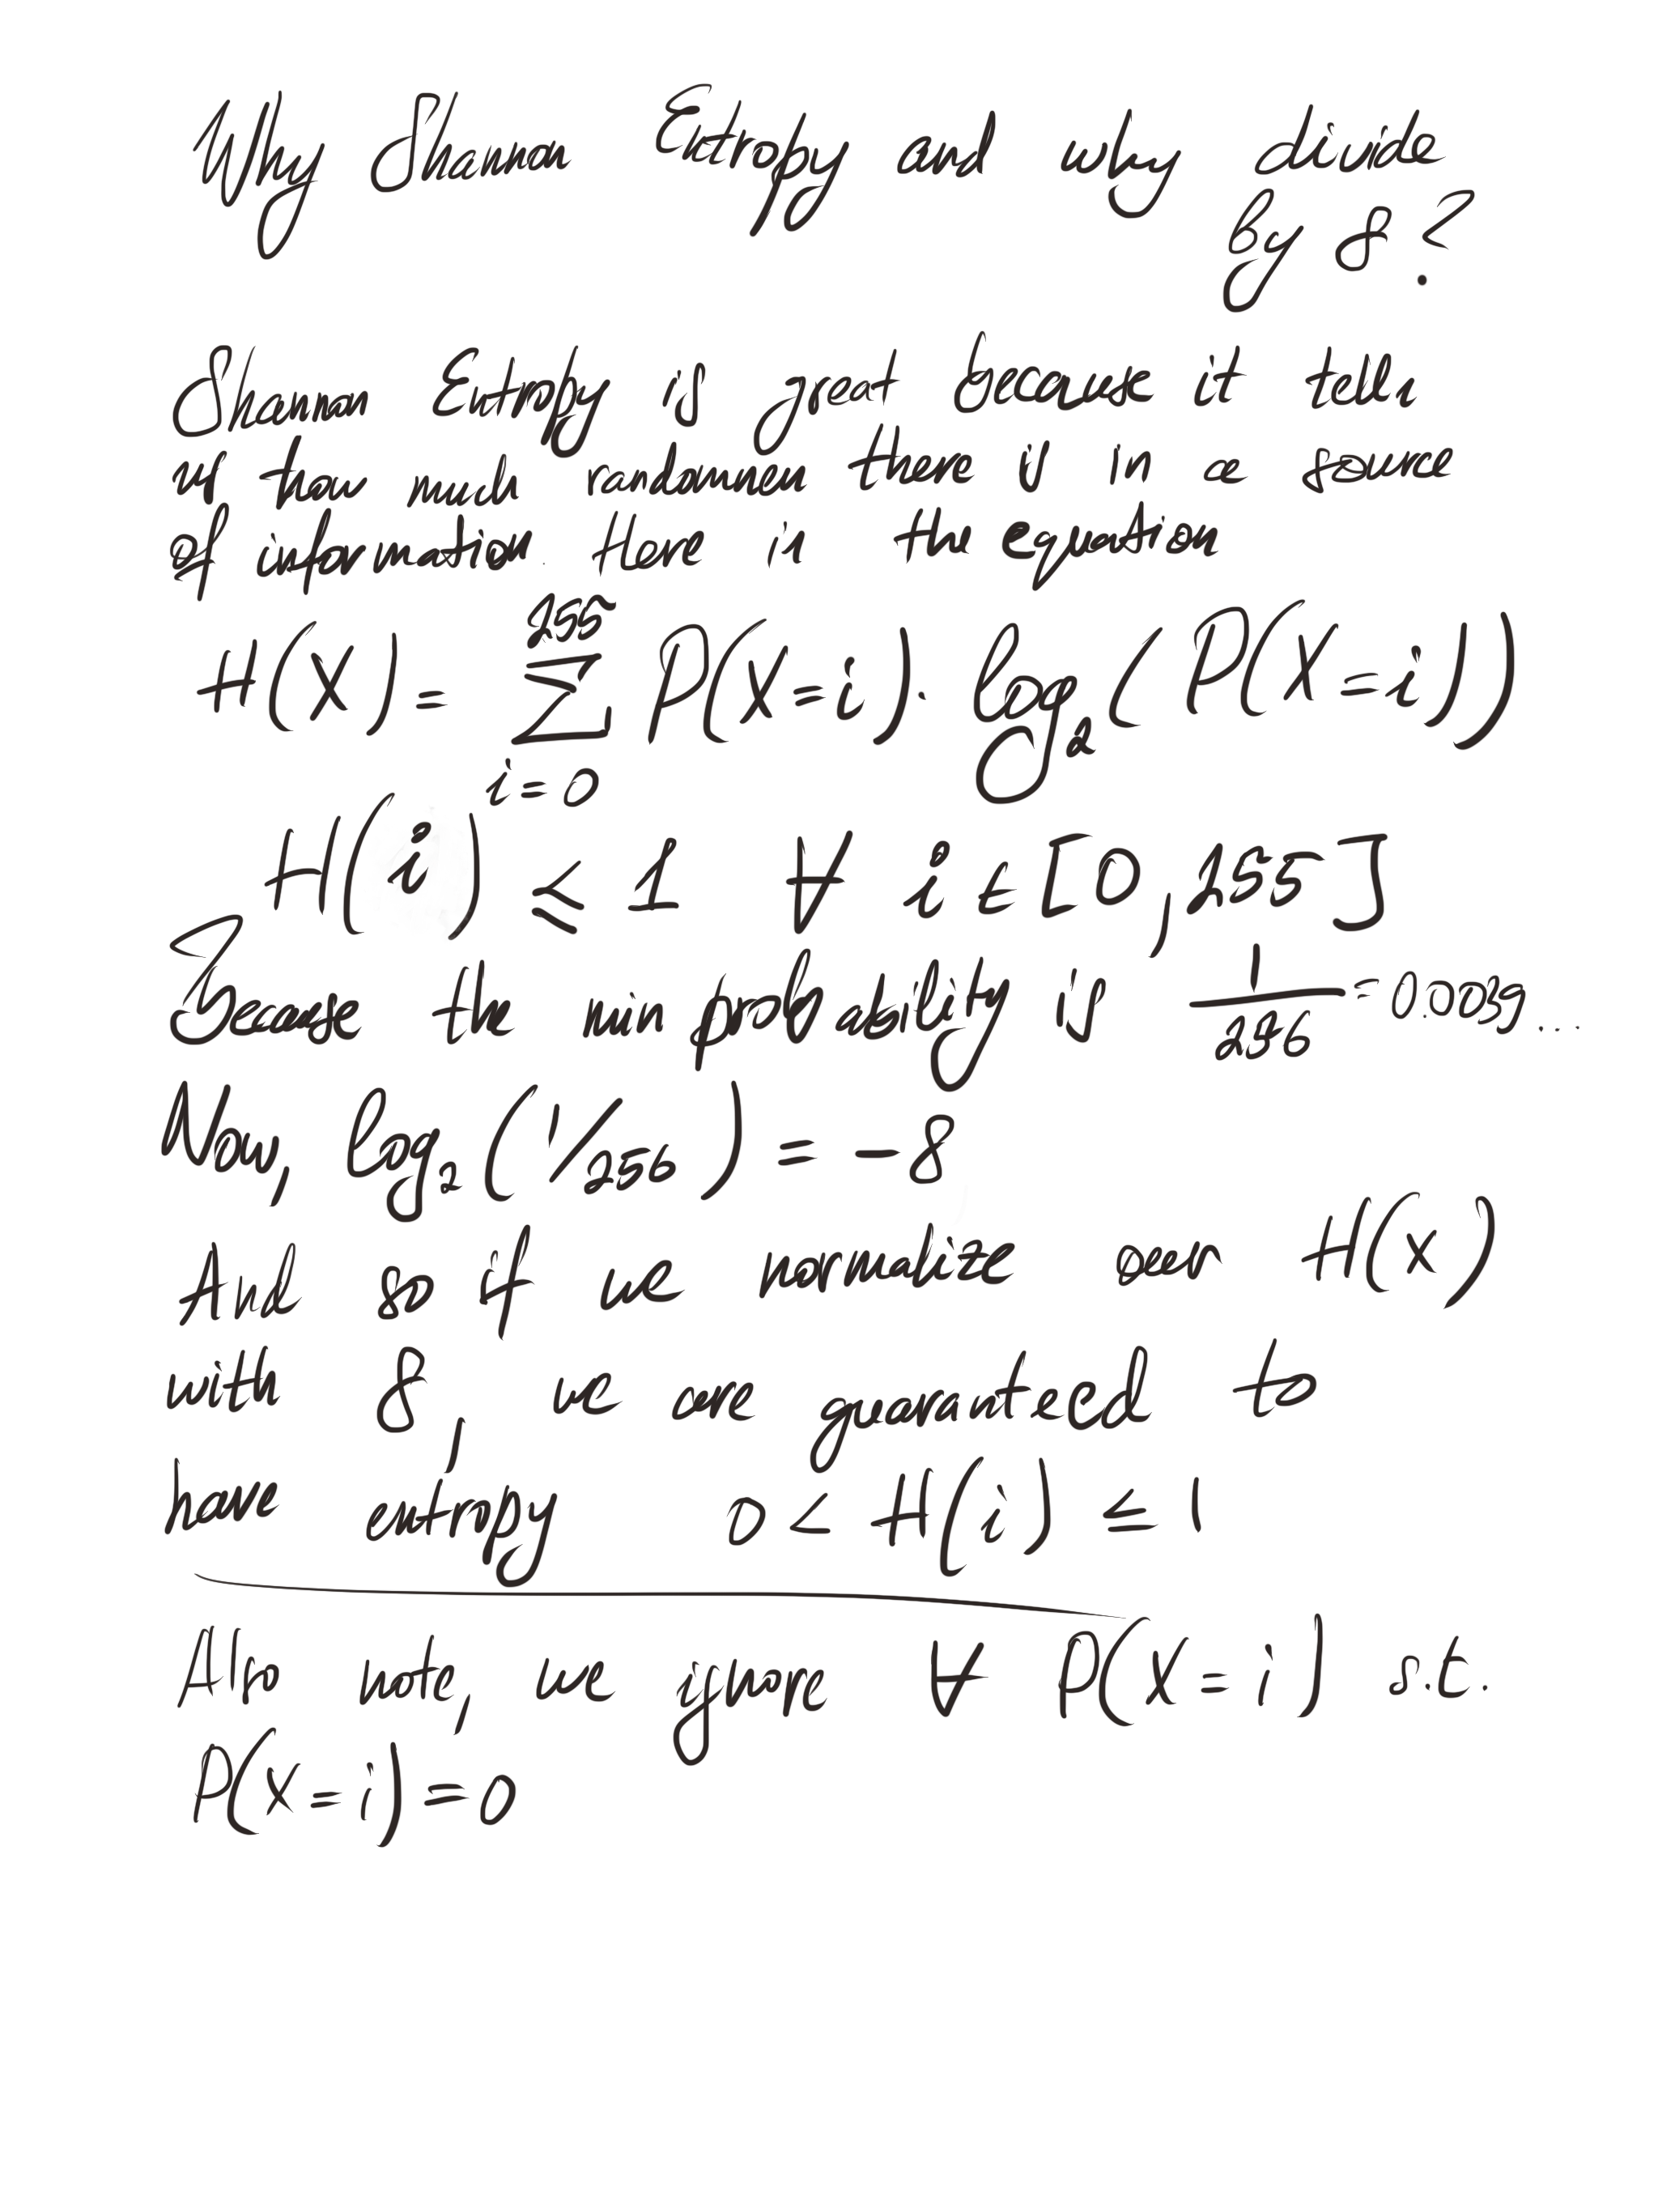 Why Shannon Entropy and why divide
by 8?
Shannon Entropy is great because it tells
us how much randomness there is in a source
of information. Here is the equation
H(X) = 255 Σ i=0 P(X=i) · log₂(P(X=i))
H(i) ≤ 1 ∀ i ∈ [0,255]
Because the min probability is 1/256 = 0.0039...
Now, log₂(1/256) = -8
And so if we normalize over H(x)
with 8, we are guaranteed to
have entropy 0 < H(i) ≤ 1
Also note, we ignore ∀ P(X=i) s.t.
P(X=i)=0